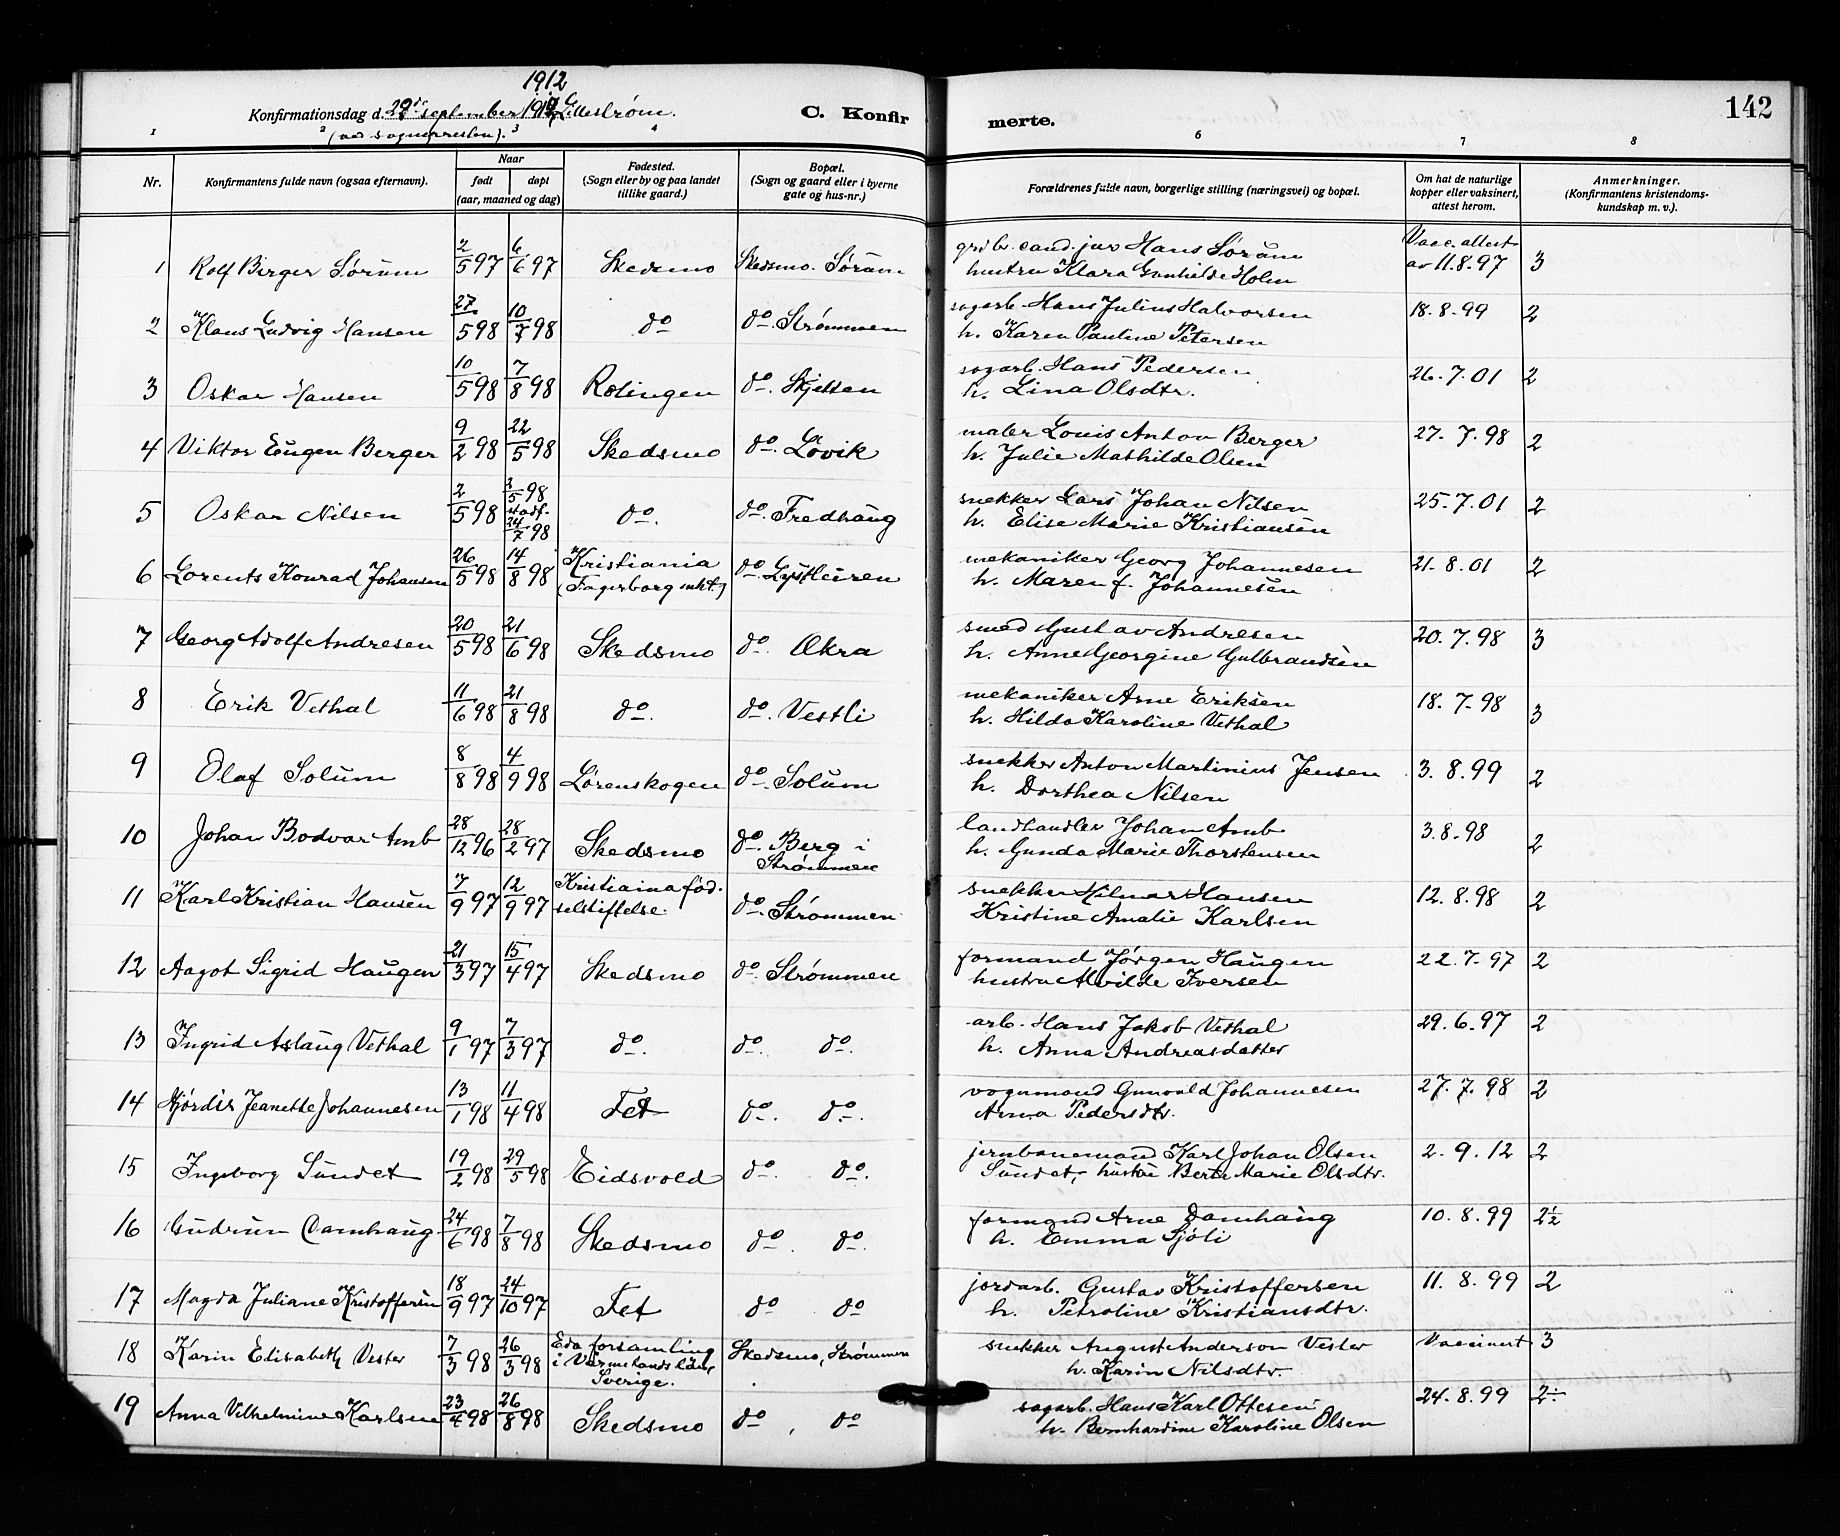 1912
Konfirmationsdag d. 29de september 1912, Lillestrøm. C. Konfir merte. 142
(ved sognepresten).
1 2 3 4 6 7 8
Nr. Konfirmantens fulde navn (ogsaa efternavn). Naar Fødested. Bopæl. Forældrenes fulde navn, borgerlige stilling (næringsvei) og bopæl. Om hat de naturlige Anmerkninger.
født døpt (Sogn eller by og paa landet (Sogn og gaard eller i byerne kopper eller vaksinert, (Konfirmantens kristendoms-
(aar, maaned og dag) tillike gaard.) gate og hus-nr.) attest herom. kundskap m. v.).
1 Rolf Berger Sørum 2/5 97 6/6 97 Skedsmo Skedsmo. Sørum grdbr. cand. jur Hans Sørum Vacc. attest
hustru Klara Gunhilde Holm av 11.8.97 3
2 Klaus Ludvig Hansen 27/5 98 10/7 98 do do. Strømmen sagarb. Hans Julius Halvorsen 18.8.99 2
h. Karen Pauline Petersen
3 Oskar Hansen 10/5 98 7/8 98 Rælingen do. Skjetten sagarb. Hans Pedersen 26.7.01 2
h. Lina Olsdtr.
4 Viktor Eugen Berger 9/2 98 22/5 98 Skedsmo do. Løvik maler Louis Anton Berger 27.7.98 2
h. Julie Mathilde Olsen
5 Oskar Nilsen 2/5 98 2/5 98 do. do. Fredhaug snekker Lars Johan Nilsen 25.7.01 2
24/7 98 h. Elise Marie Kristiansen
6 Lorents Konrad Johansen 26/5 98 14/8 98 Kristiania do. mekaniker Georg Johannesen 21.8.01 2
(Fagerborg mkt.) h. Maren f. Johannesen
7 Georg Adolf Andresen 20/5 98 21/6 98 Skedsmo do. Økra smed Gustav Andresen 20.7.98 3
h. Anne Georgine Gulbrandsen
8 Erik Vethal 11/6 98 21/8 98 do. do. Vestli mekaniker Arne Eriksen 18.7.98 3
h. Hilda Karoline Vethal
9 Olaf Solum 8/8 98 4/9 98 Lørenskogen do. Solum snekker Anton Martinius Jensen 3.8.99 2
h. Dorthea Nilsen
10 Johan Bodvar Amb 28/12 96 28/2 97 Skedsmo do. Berg i landhandler Johan Amb 3.8.98 2
Strømmen h. Gunda Marie Thorstensen
11 Karl Kristian Hansen 7/9 97 12/9 97 Kristiaina fød- do. Strømmen snekker Hilmar Hansen 12.8.98 2
selstiftelse. Kristine Amalie Karlsen
12 Aagot Sigrid Haugen 21/3 97 15/4 97 Skedsmo do. Strømmen formand Jørgen Haugen 22.7.97 2
hustru Alvilde Iversen
13 Ingrid Aslaug Vethal 9/1 97 7/3 97 do. do. do. arb. Hans Jakob Vethal 29.6.97 2
h. Anna Andreasdatter
14 Hjørdis Jeanette Johannesen 13/1 98 11/4 98 Fet do. do. vognmand Gunvald Johannesen 27.7.98 2
Anna Pedersdtr.
15 Ingeborg Sundet 19/2 98 29/5 98 Eidsvold do. do. jernbanemand Karl Johan Olsen 2.9.12 2
Sundet, hustru Berte Marie Olsdtr.
16 Gudrun Damhaug 24/6 98 7/8 98 Skedsmo do. do. formand Arne Damhaug 10.8.99 2½
h. Emma Sjøli
17 Magda Juliane Kristoffersen 18/9 97 24/10 97 Fet do do jordarb. Gustav Kristoffersen 11.8.99 2
h. Petroline Kristiansdtr.
18 Karin Elisabeth Vester 7/3 98 26/3 98 Eda forsamling Skedsmo, Strømmen snekker August Anderson Vester Vaccinert 3
i Värmelands län, h. Karin Nilsdtr.
Sverige.
19 Anna Vilhelmine Karlsen 23/4 98 26/8 98 Skedsmo do, do sagarb. Hans Karl Ottesen 24.8.99 2÷
h. Bernhardine Karoline Olsen